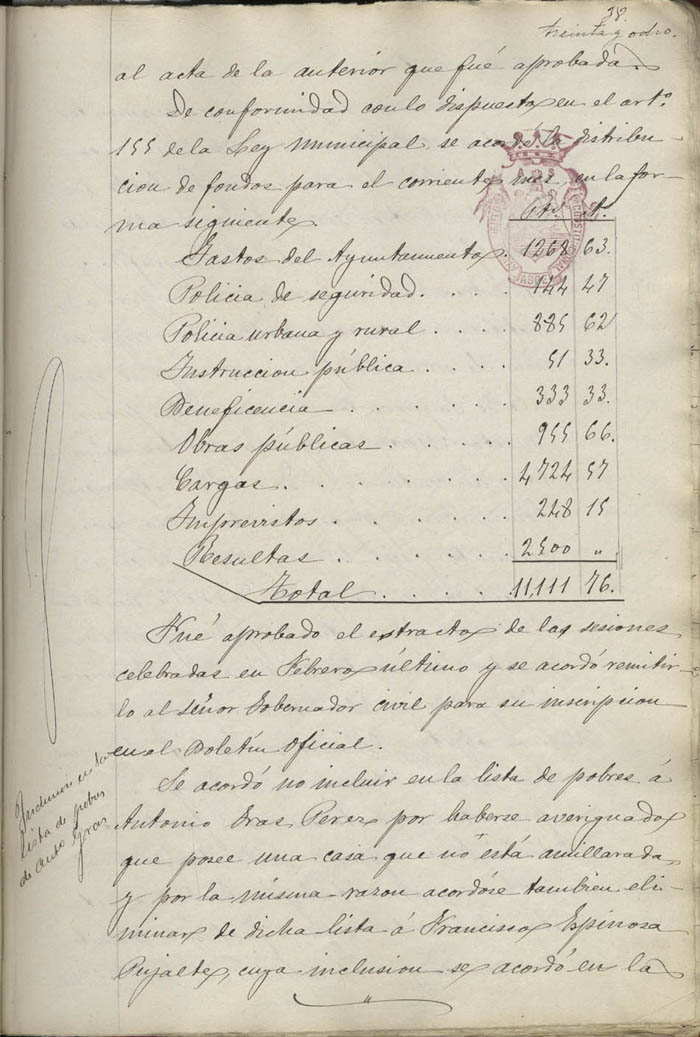 38.
treinta y ocho.
al acta de la anterior que fué aprobada.
De conformidad con lo dispuesto en el artº
155 de la Ley Municipal se acordó la distribu-
cion de fondos para el corriente mes, en la for-
ma siguiente.
Gastos del Ayuntamiento. 1268 63.
Policia de seguridad. . . . 144 47
Policia urbana y rural . . . . 885 62
Instruccion pública . . . . 51 33.
Beneficencia . . . . . . . 333 33.
Obras públicas . . . . . 955 66.
Cargas . . . . . . . 4724 57
Imprevistos . . . . . . 248 15
Resultas . . . . . . 2500 "
Total . . . . 11,111 76.
Fué aprobado el extracto de las sesiones
celebradas en Febrero último y se acordó remitir-
lo al señor Gobernador civil para su inscripcion
en el Boletín Oficial.
Se acordó no incluir en la lista de pobres á
Antonio Gras Perez por haberse averiguado
que posee una casa que no está amillarada
y por la misma razon acordóse tambien eli-
minar de dicha lista á Francisco Espinosa
Pujalte, cuya inclusion se acordó en la
lista de pobres
de Antº Gras